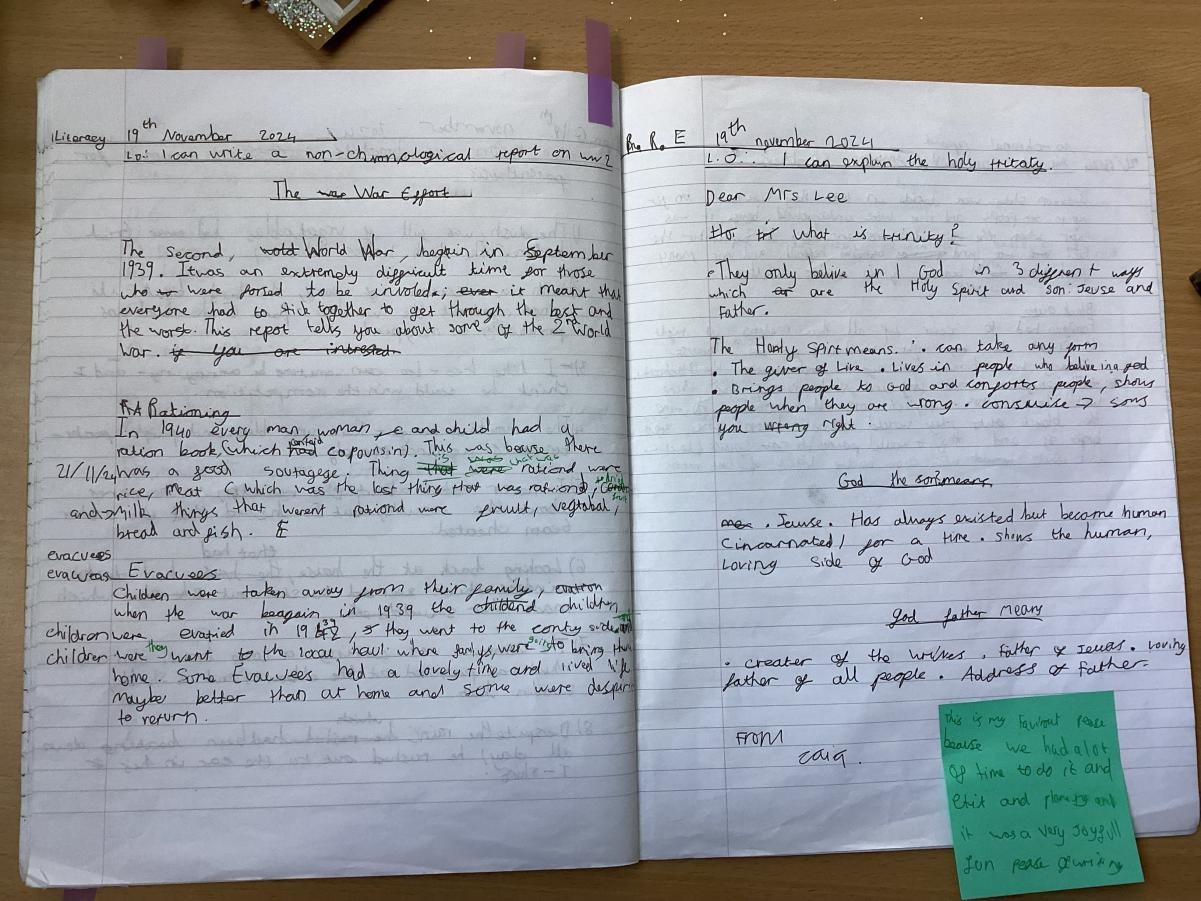 Literacy 19th November 2024
L.O: I can write a non-chronological report on ww2
The war War Effort
The Second, World War, began in September
1939. It was an extremely difficult time for those
who were forsed to be involed; ever it meant that
everyone had to stick together to get through the best and
the worst. This repot tells you about some of the 2nd World
War. if you are intrested
Rationing
In 1940 every man, woman, and child had a
ration book (which had contaid copouns in). This was beause there
21/11/24 was a good soutagege. Thing that were that was rationd were
rice, meat (which was the last thing that was rationd),
and milk things that werent rationd were fruit, vegtabal,
bread and fish. E
evacuees
evacuees Evacuees
Children were taken away from their family,
when the war beagain in 1939 the childend children
children were evatied in 1939, they went to the conty side and
children were they went to the local haul where familys were going to bring them
home. Some Evacuees had a lovely time and lived life
Maybe better than at home and some were despur
to return.
R. E 19th november 2024
L.O: I can explain the holy tritaty.
Dear Mrs Lee
What is trinity?
They only belive in 1 God in 3 diffrent ways
which are the Holy Spirit and son: Jeuse and
Father.
The Hooly Spirt means. . can take any form
. The giver of Live . Lives in people who belive in a god
. Brings people to God and conforts people, shows
people when they are wrong . → sons
you wrong right .
God the son means
. Jeuse . Has always existed but become human
(incarnated) for a time . shows the human,
Loving side of God
god father means
. creater of the . Father of Jeuas . Loving
father of all people . Address of Father.
From
Zara.
This is my favirout pease
beause we had alot
of time to do it and
Edit and and
it was a very Joyfull
fun pease of writing